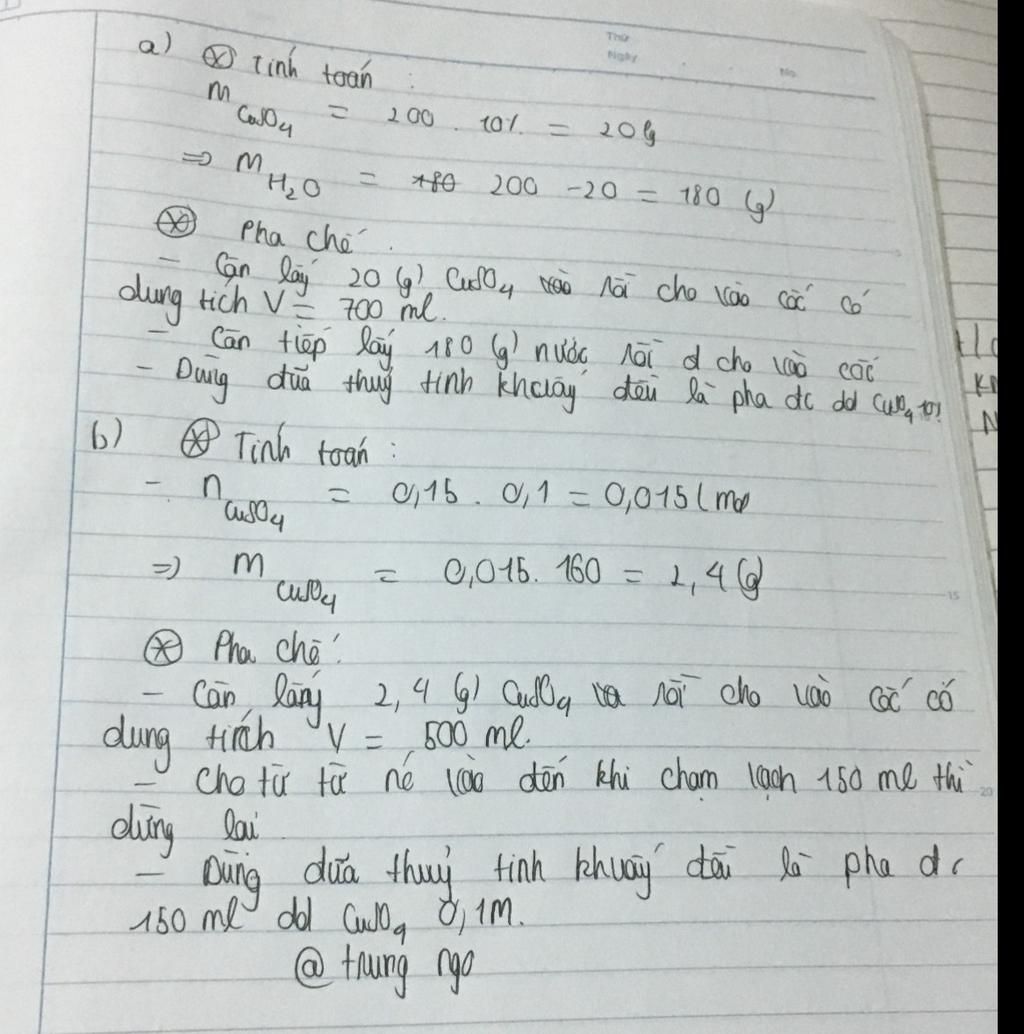 Thứ
Ngày
No
a) ⊛ Tính toán :
m CuSO4 = 200 . 10% = 20g
=> m H2O = 200 - 20 = 180 (g)
⊛ Pha chế.
- Cần lấy 20 (g) CuSO4 rồi cho vào cốc có
dung tích V = 700 ml.
- Cân tiếp lấy 180 (g) nước rồi cho vào cốc
- Dùng đũa thuỷ tinh khuấy đều là pha dc dd CuSO4 10%
b) ⊛ Tính toán :
- n CuSO4 = 0,15 . 0,1 = 0,015 (mol
=> m CuSO4 = 0,015. 160 = 2,4 (g)
15
⊛ Pha chế:
- Cần lấy 2,4 (g) CuSO4 rồi cho vào cốc có
dung tích V = 500 ml.
- Cho từ từ nc vào đến khi chạm vạch 150 ml thì
20
dừng lại
- Dùng đũa thuỷ tinh khuấy đều là pha dc
150 ml dd CuSO4 0,1M.
@ trung ngo